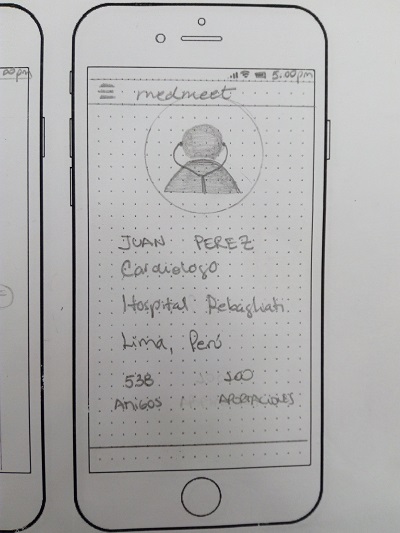 00pm
5.00pm
medmeet
JUAN PEREZ
Cardiologo
Hospital Rebagliati
Lima, Perú
538 300
AMIGOS APORTACIONES